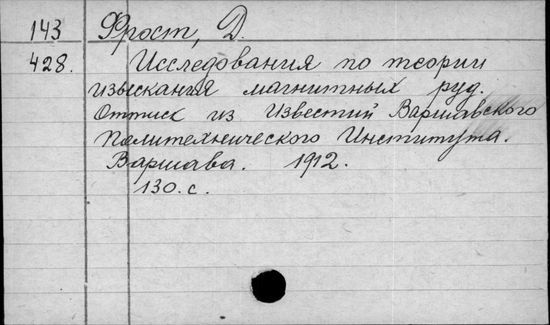 143 Фрост, Д.
428. Исследования по теории
изыскания магнитных руд.
Оттиск из Известий Варшавского
Политехнического Института.
Варшава. 1912.
130. с.